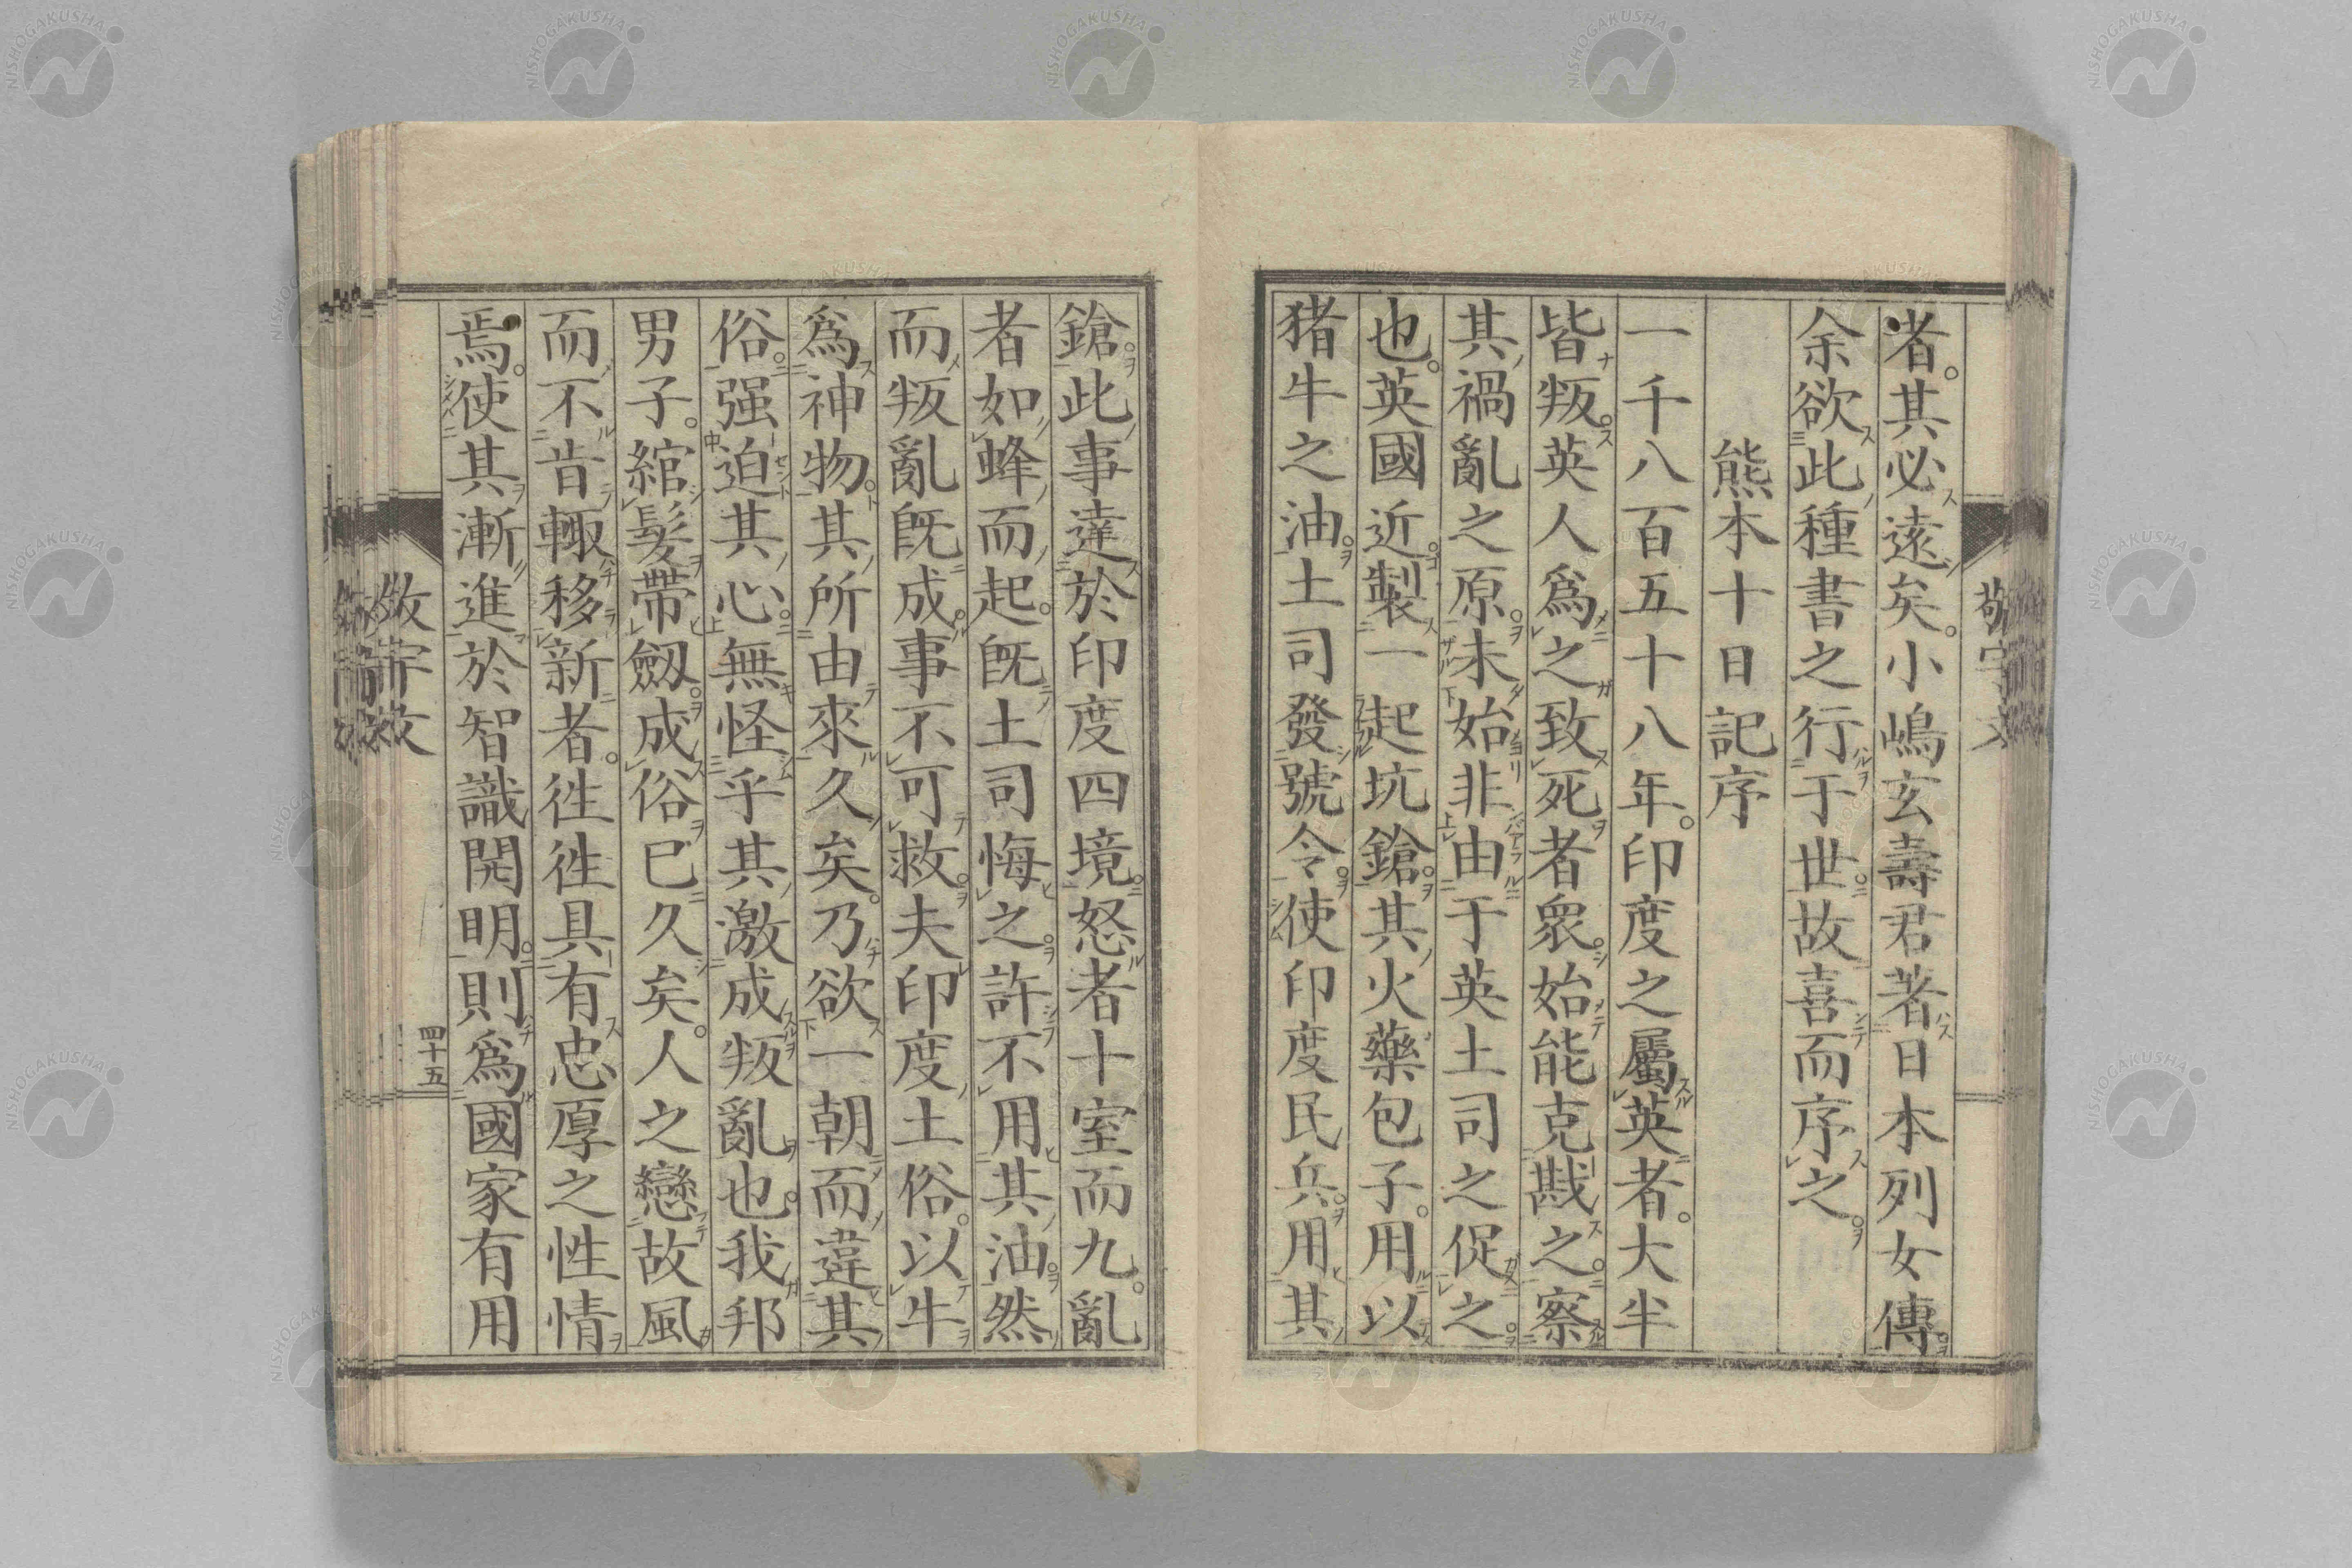 者。其必遠矣。小嶋玄壽君著日本列女傳。
余欲此種書之行于世。故喜而序之。
熊本十日記序
一千八百五十八年。印度之屬英者。大半
皆叛。英人爲之致死者衆。始能克戡之。察
其禍亂之原。未始非由于英土司之促之。
也。英國近製一起坑鎗。其火藥包子。用以
猪牛之油。土司發號令。使印度民兵。用其
鎗。此事達於印度四境。怒者十室而九。亂
者如蜂而起。旣土司悔之。許不用其油。然
而叛亂旣成。事不可救。夫印度土俗。以牛
爲神物。其所由來久矣。乃欲一朝而違其
俗。强迫其心。無怪乎其激成叛亂也。我邦
男子。綰髮帶劔。成俗已久矣。人之戀故風
而不肯輙移新者。徃徃具有忠厚之性情
焉。使其漸進於智識開明。則爲國家有用
敬宇文
四十五
NISHOGAKUSHA